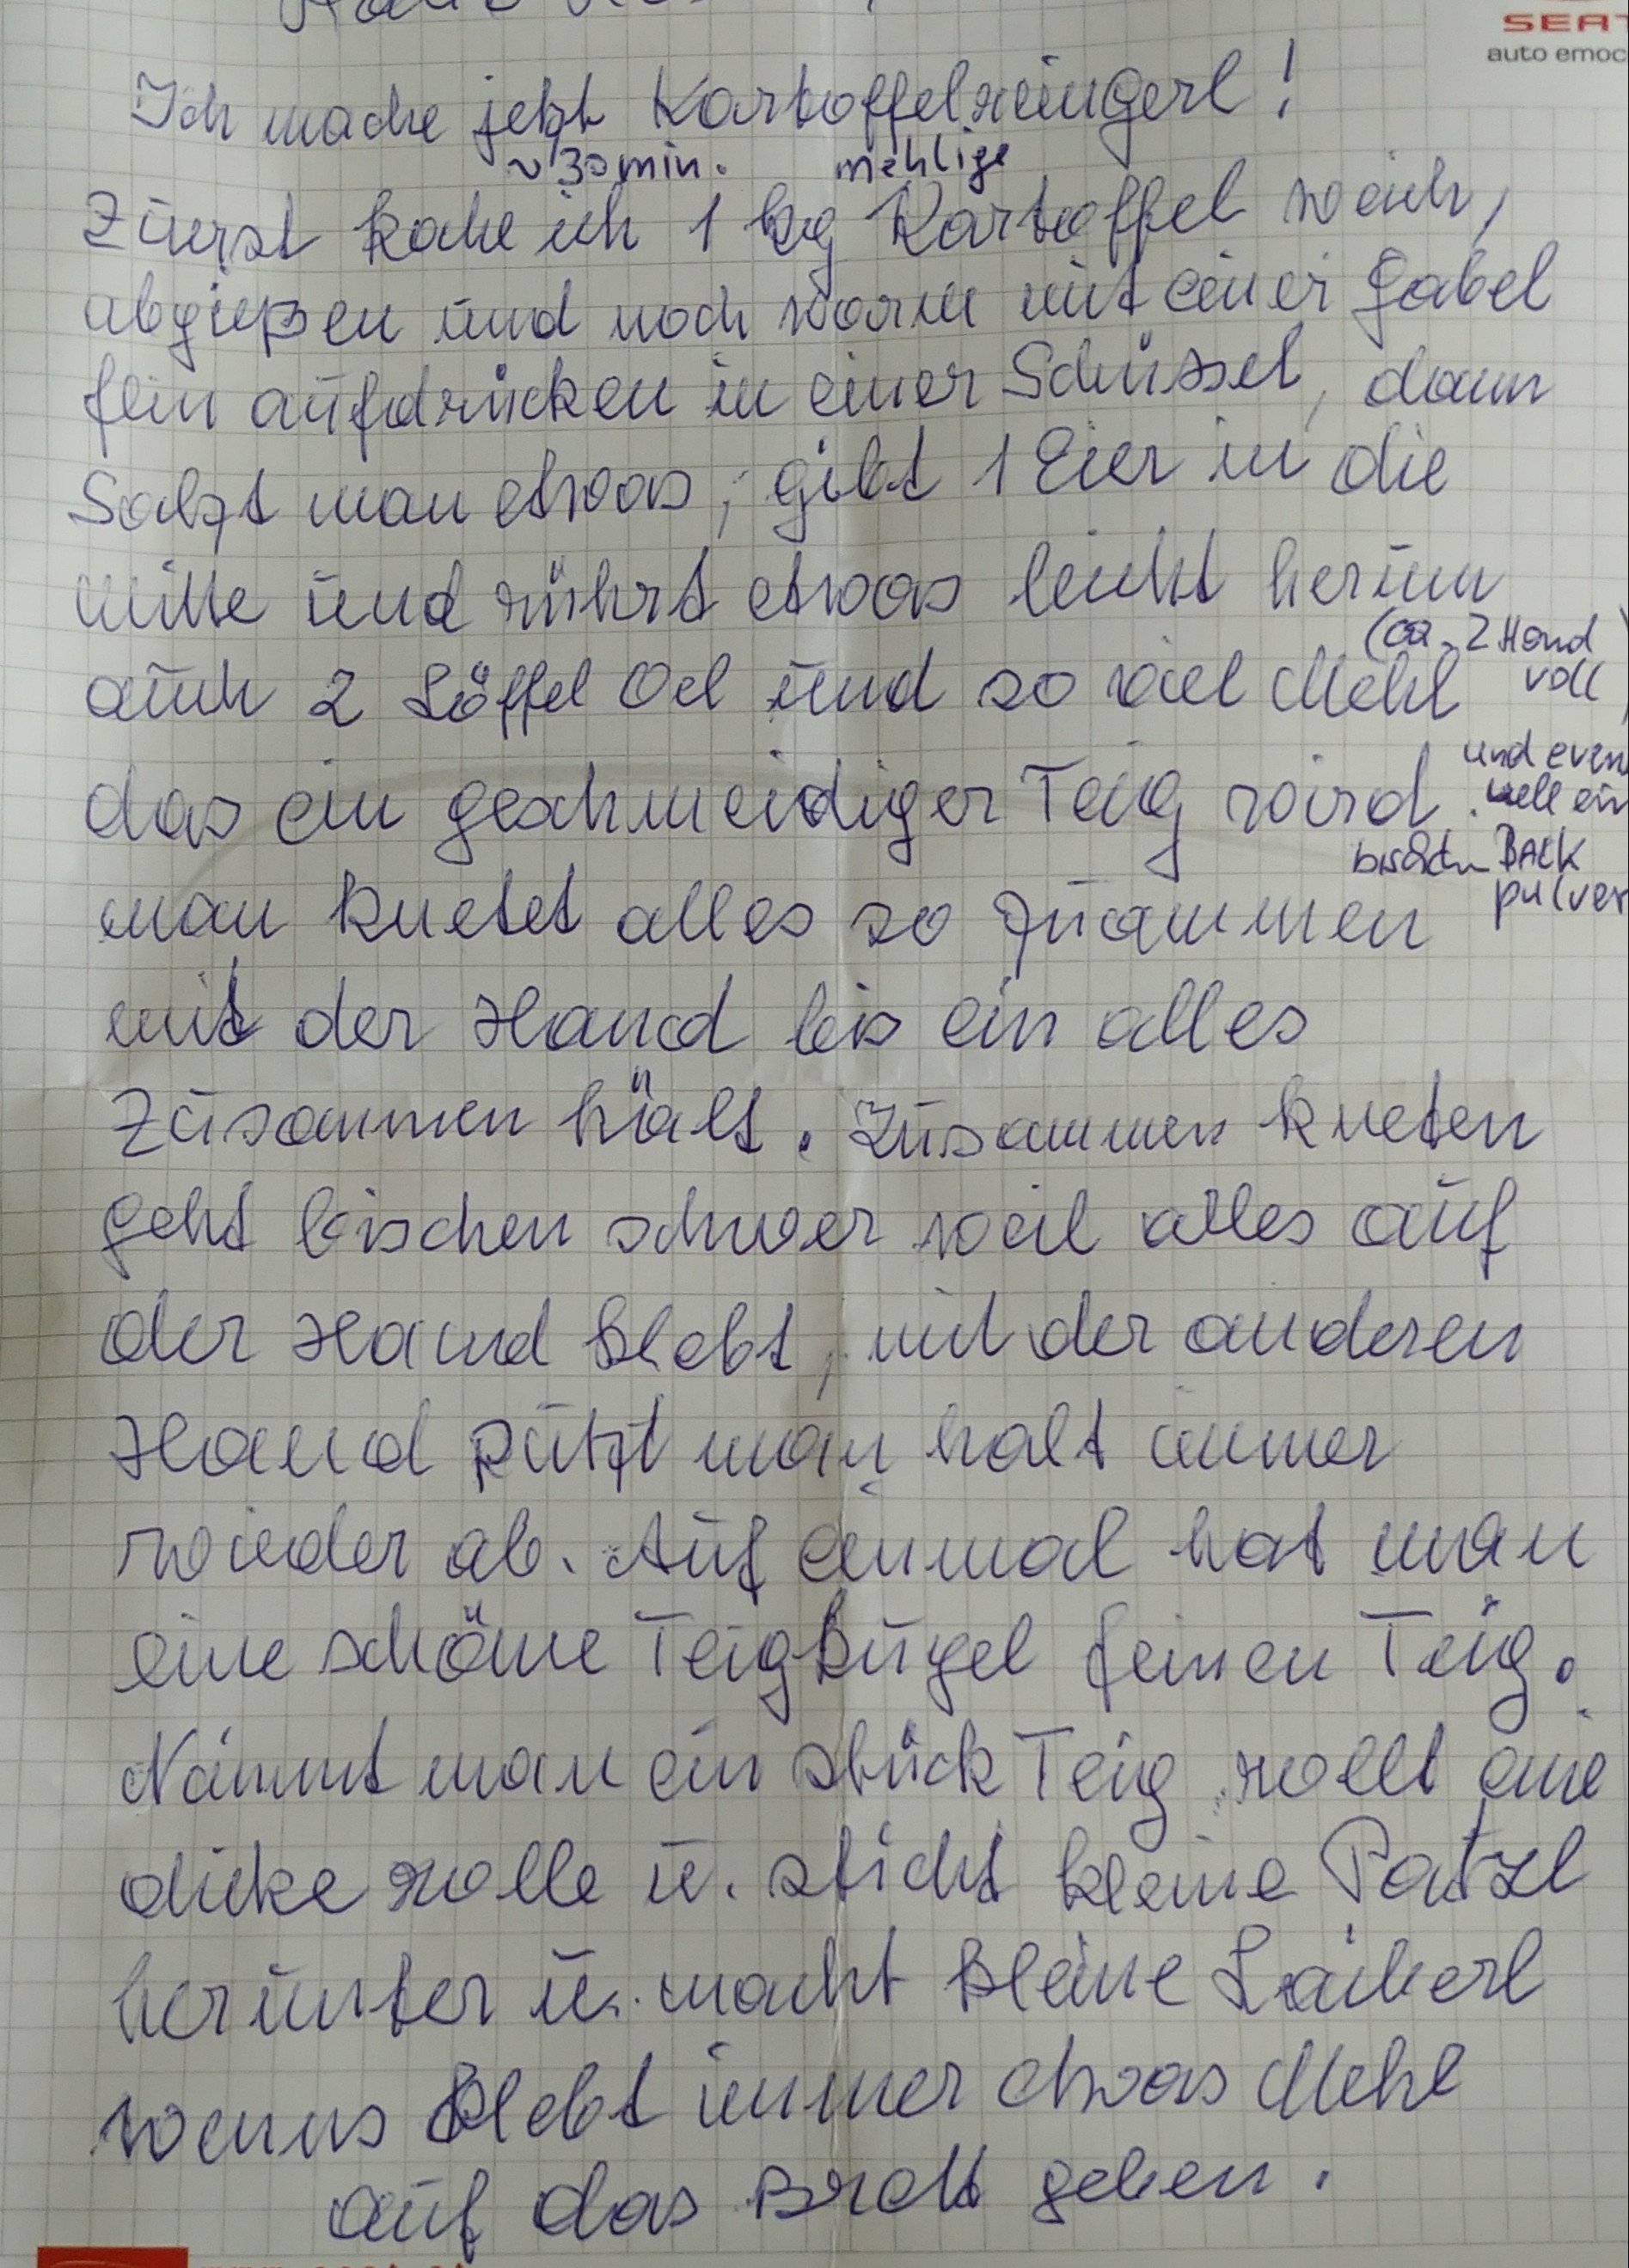 SEAT
auto emoc
Ich mache jetzt Kartoffelreingerl!
~ 30 min. mehlige
Zuerst koche ich 1 kg Kartoffel weich,
abgießen und noch warm mit einer Gabel
fein aufdrücken in einer Schüssel, dann
Salzt man etwas, gibt 1 Eier in die
mitte und rührt etwas leicht herum
(ca. 2 Hand voll)
auch 2 Löffel Oel und so viel Mehl
das ein geschmeidiger Teig wird.
und even
uell ein
bischen BACK
pulver
man knetet alles so zuammen
mit der Hand bis ein alles
Zusammen hält. Zusammen kneten
geht bischen schwer weil alles auf
der Hand klebt, mit der anderen
Hand putzt man halt immer
wieder ab. Auf einmal hat man
eine schöne Teigkugel feinen Teig.
Nimmt man ein stück Teig rollt eine
dicke rolle u. sticht kleine Patzl
herunter u. macht kleine Laiberl
wenns klebt immer etwas Mehl
auf das Brett geben.